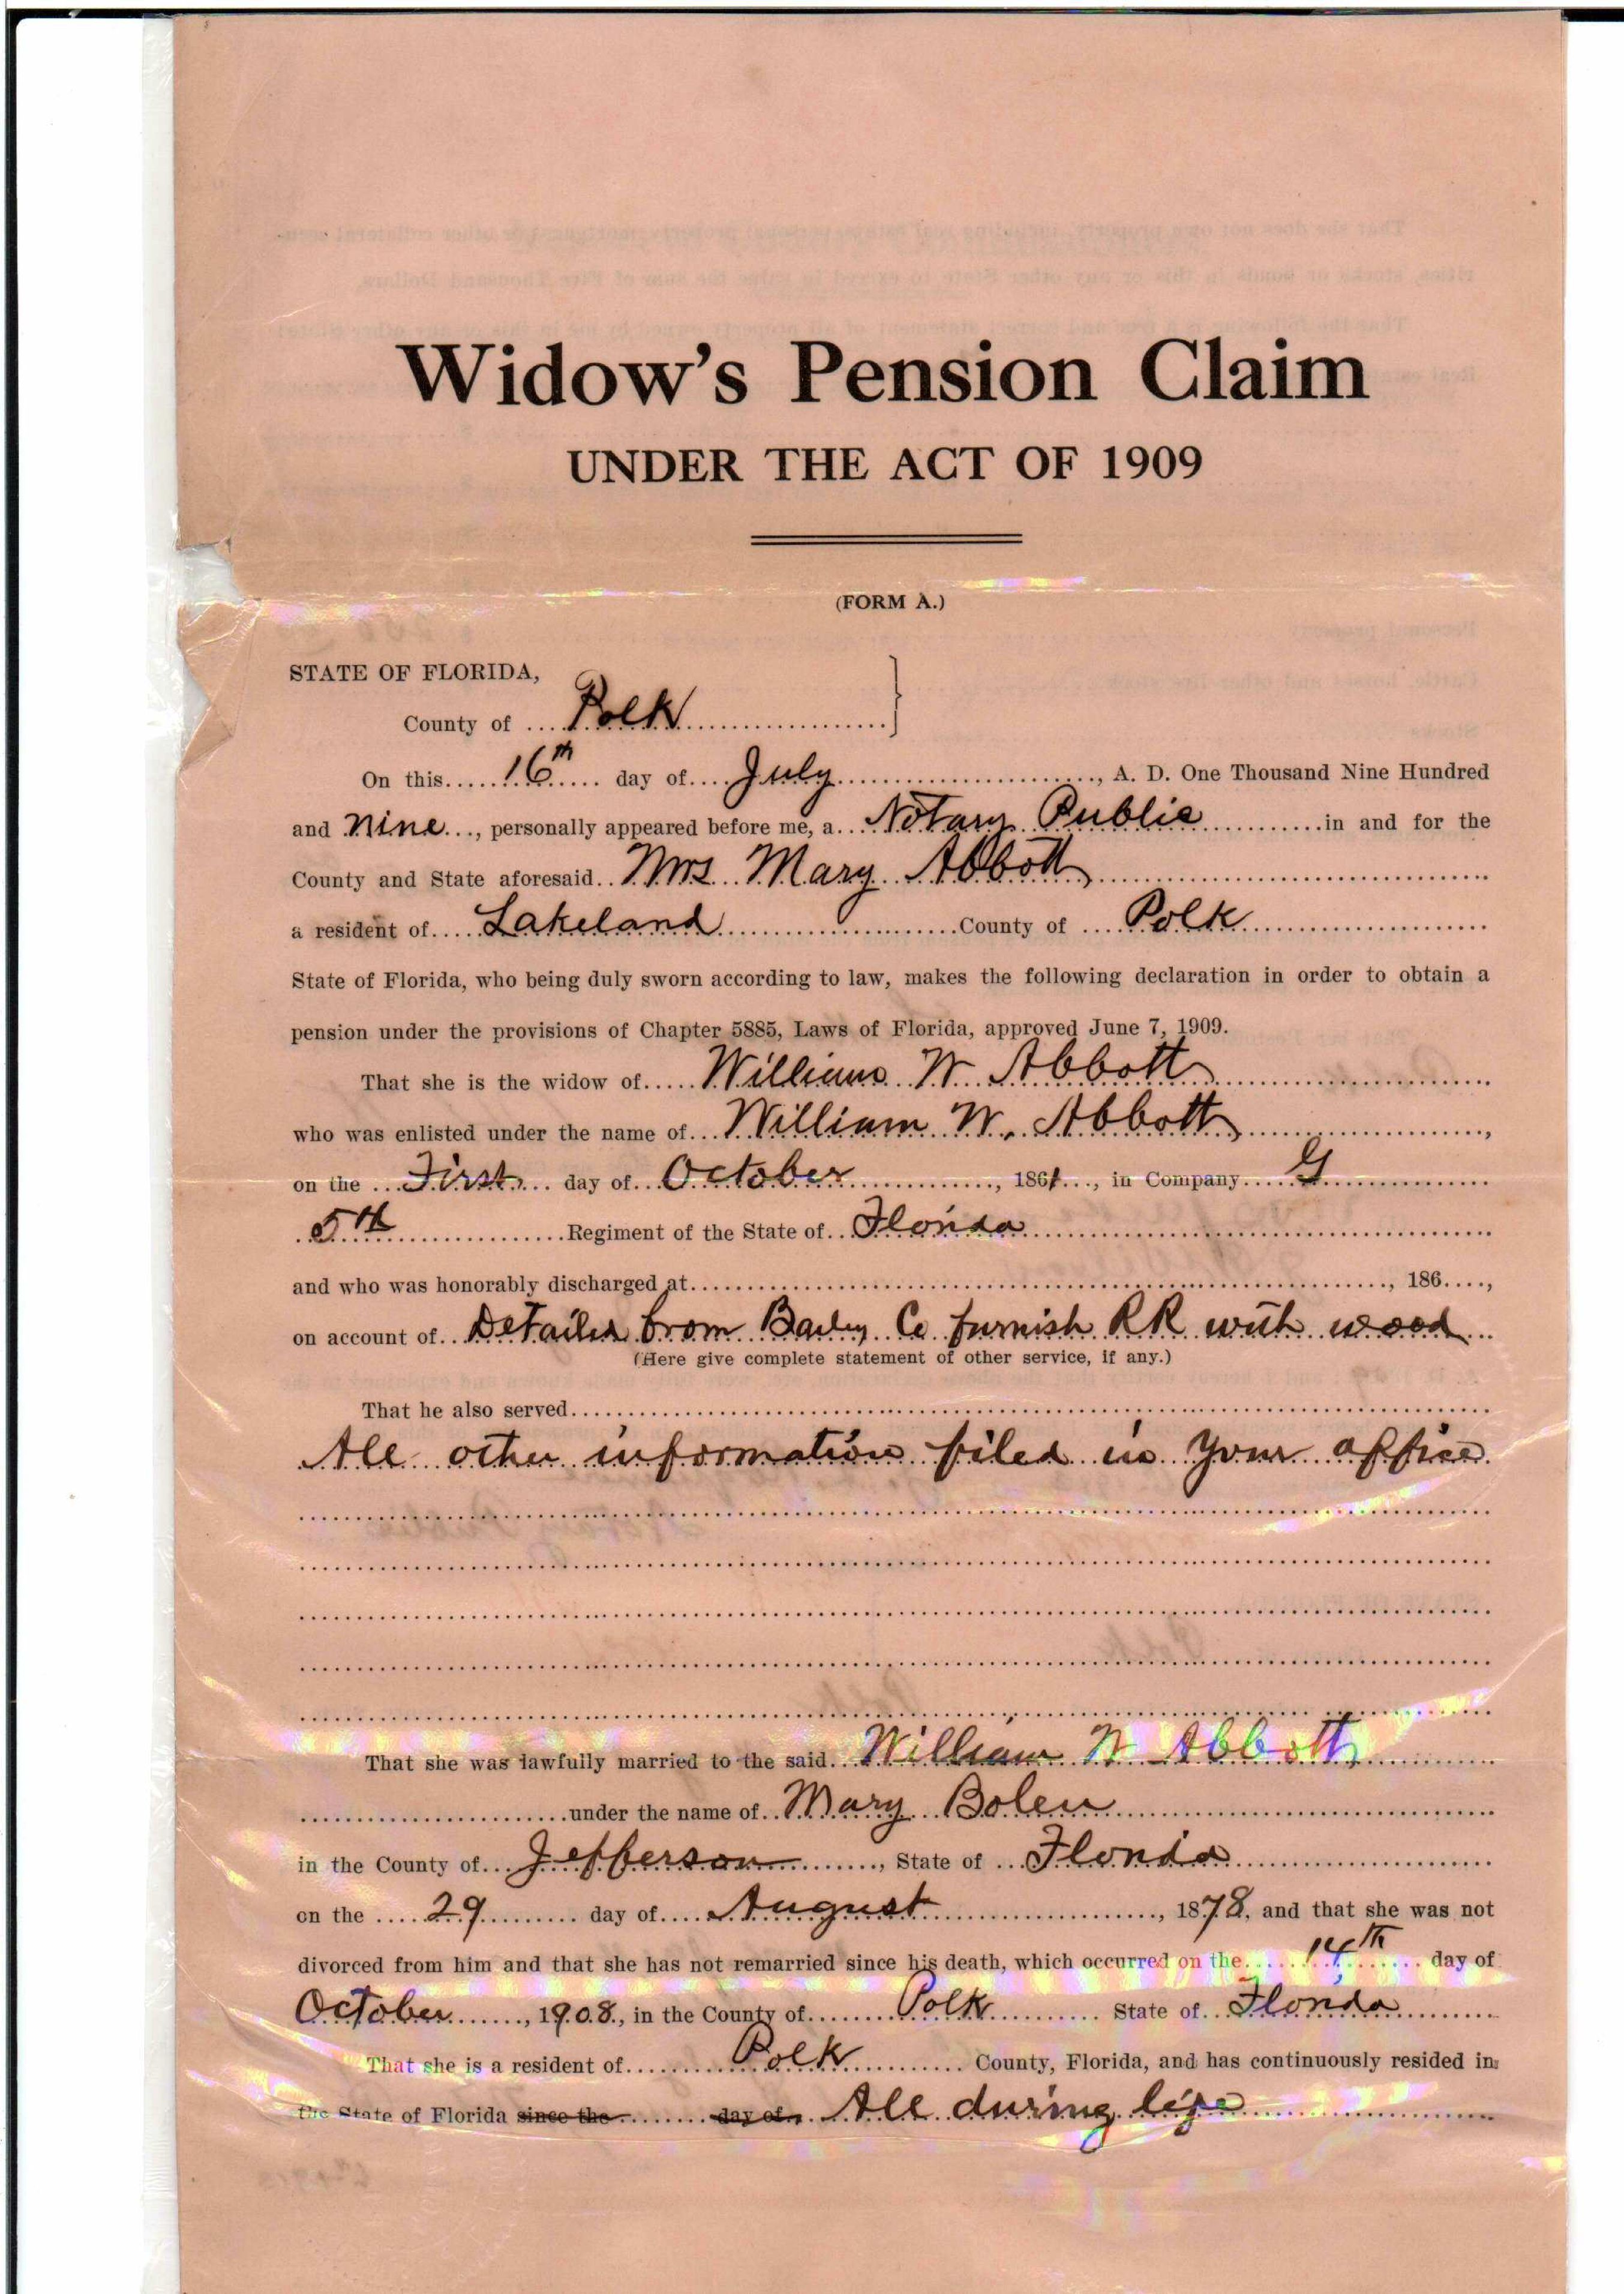 Widow's Pension Claim
UNDER THE ACT OF 1909
(FORM A.)
STATE OF FLORIDA,
County of Polk
On this 16th day of July, A. D. One Thousand Nine Hundred
and nine, personally appeared before me, a Notary Public in and for the
County and State aforesaid Mrs Mary Abbott
a resident of Lakeland County of Polk
State of Florida, who being duly sworn according to law, makes the following declaration in order to obtain a
pension under the provisions of Chapter 5885, Laws of Florida, approved June 7, 1909.
That she is the widow of William W Abbott
who was enlisted under the name of William W. Abbott,
on the First day of October, 1861, in Company G
5th Regiment of the State of Florida
and who was honorably discharged at, 186,
on account of Detailed from Co furnish RR with wood
(Here give complete statement of other service, if any.)
That he also served
All other information filed in your office
That she was lawfully married to the said William W Abbott
under the name of Mary Bolen
in the County of Jefferson, State of Florida
on the 29 day of August, 1878, and that she was not
divorced from him and that she has not remarried since his death, which occurred on the 14th day of
October, 1908, in the County of Polk State of Florida
That she is a resident of Polk County, Florida, and has continuously resided in
the State of Florida since the day of All during life